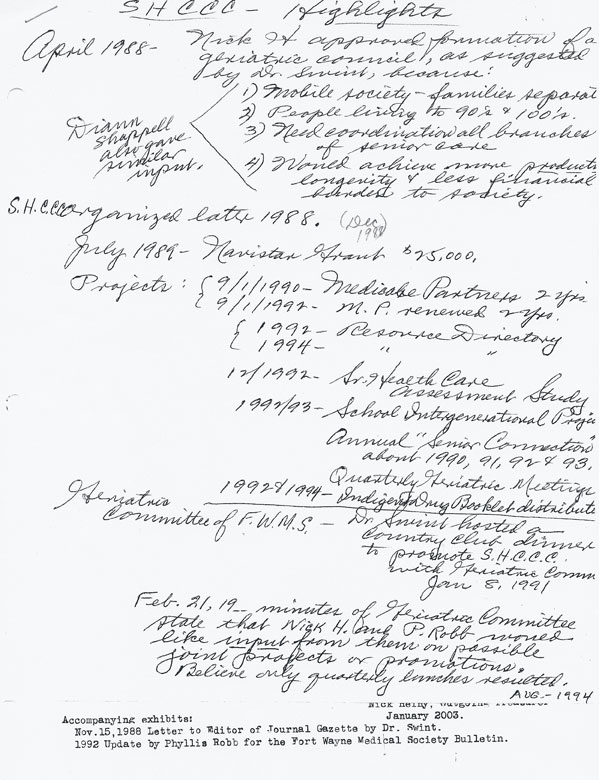 S H C C C - Highlights
April 1988 - Nick H approved formation of a
geriatric council, as suggested
by Dr. Swint, because:
1) Mobile society - families separat
2) People living to 90's & 100's.
3) Need coordination all branches
of senior care
4) Would achieve more products
longevity & less financial
burden to society.
Diann
Shappell
also gave
similar
input.
S.H.C.C.C. organized later 1988. (Dec)
1988
July 1989 - Navistar Grant $25,000.
Projects: { 9/1/1990 - Medicabe Partners 2 yrs
{ 9/1/1992 - M.P. renewed 2 yrs.
{ 1992 - Resource Directory
{ 1994 - " "
12/1992 - Sr. Health Care
Assessment Study
1992/93 - School Intergenerational Proje
Annual "Senior Connection"
about 1990, 91, 92 & 93.
Quarterly Geriatric Meetings
1992 & 1994 - Indigent Drug Booklet distribute
Geriatric
Committee of F.W.M.S. - Dr. Swint hosted a
country club dinner
to promote S.H.C.C.C.
with Geriatric Comm
Jan 8, 1991
Feb. 21, 19__ minutes of Geriatric Committee
state that Nick H. and P. Robb would
like input from them on possible
joint projects or promotions.
Believe only quarterly lunches resulted.
AUG.-1994
Nick Helny, Outgoing Treasurer
January 2003.
Accompanying exhibits:
Nov.15,1988 Letter to Editor of Journal Gazette by Dr. Swint.
1992 Update by Phyllis Robb for the Fort Wayne Medical Society Bulletin.